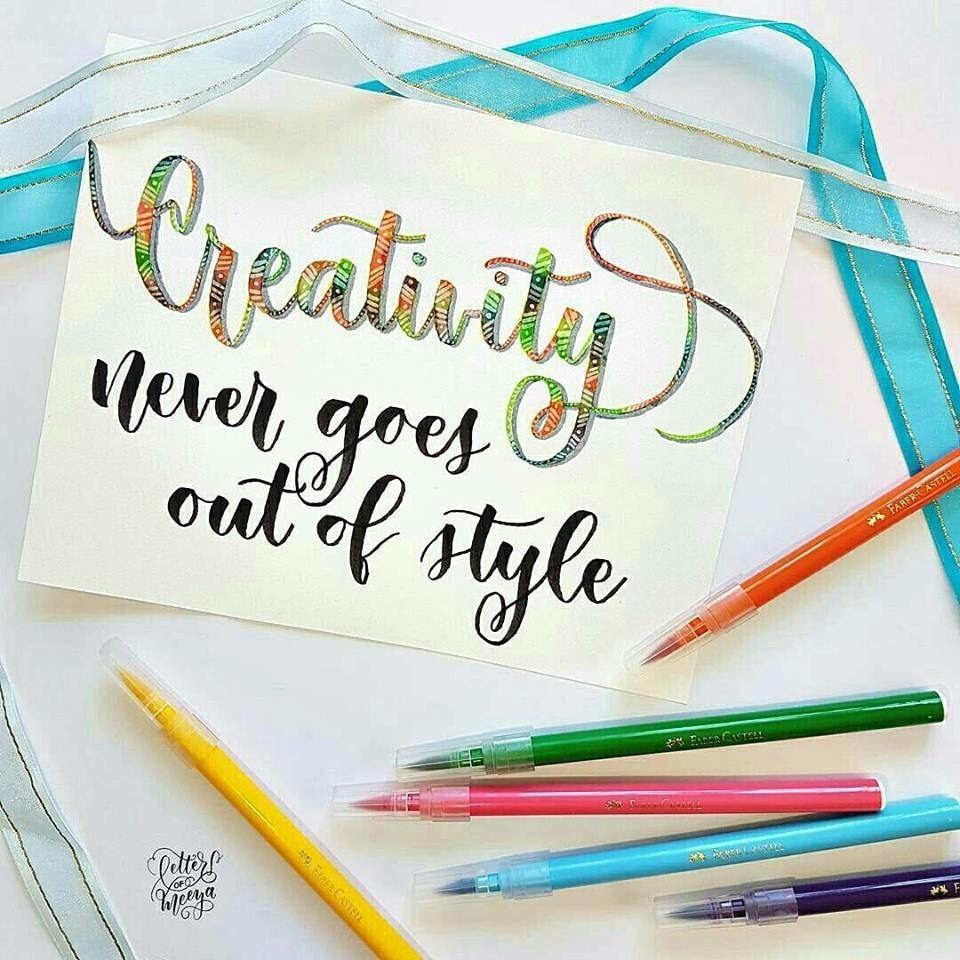 Creativity
never goes
out of style
FABER-CASTELL
FABER-CASTELL
FABER-CASTELL
FABER-CASTELL
FABER-CASTELL
letters
of
meeya